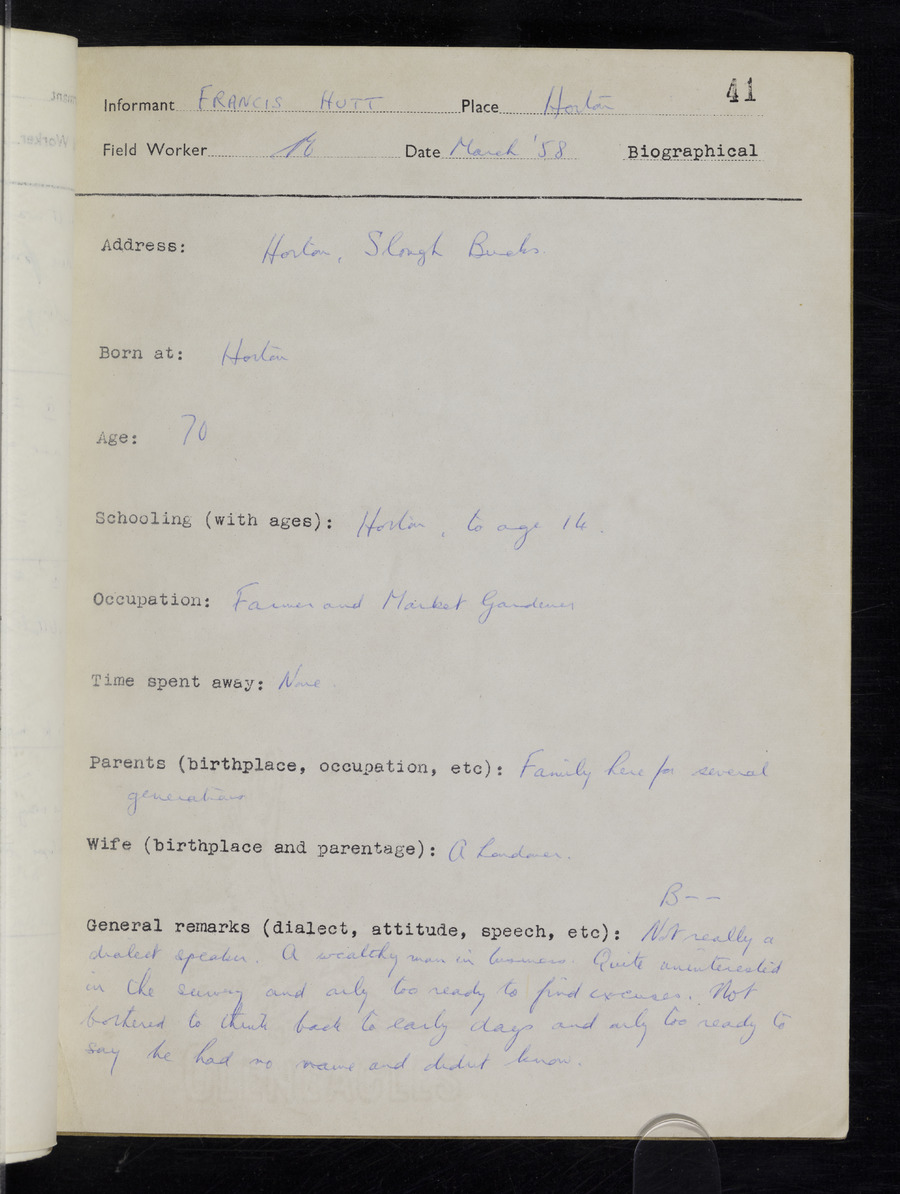 41
Informant FRANCIS HUTT Place Horton
Field Worker Date March '58 Biographical
Address: Horton, Slough Bucks.
Born at: Horton
Age: 70
Schooling (with ages): Horton, to age 14.
Occupation: Farmer and Market Gardener
Time spent away: None.
Parents (birthplace, occupation, etc): Family here for several
generations
Wife (birthplace and parentage): A Londoner.
B--
General remarks (dialect, attitude, speech, etc): Not really a
dialect speaker. A wealthy man in business. Quite uninterested
in the survey and only too ready to find excuses. Not
bothered to think back to early days and only too ready to
say he had no name and didnt know.